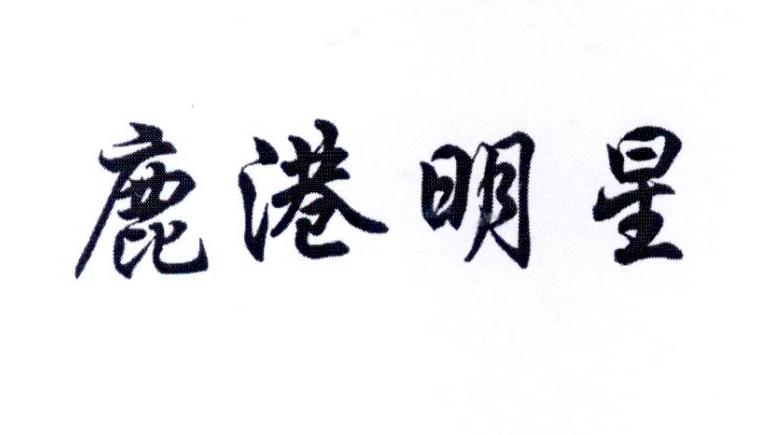 鹿港明星